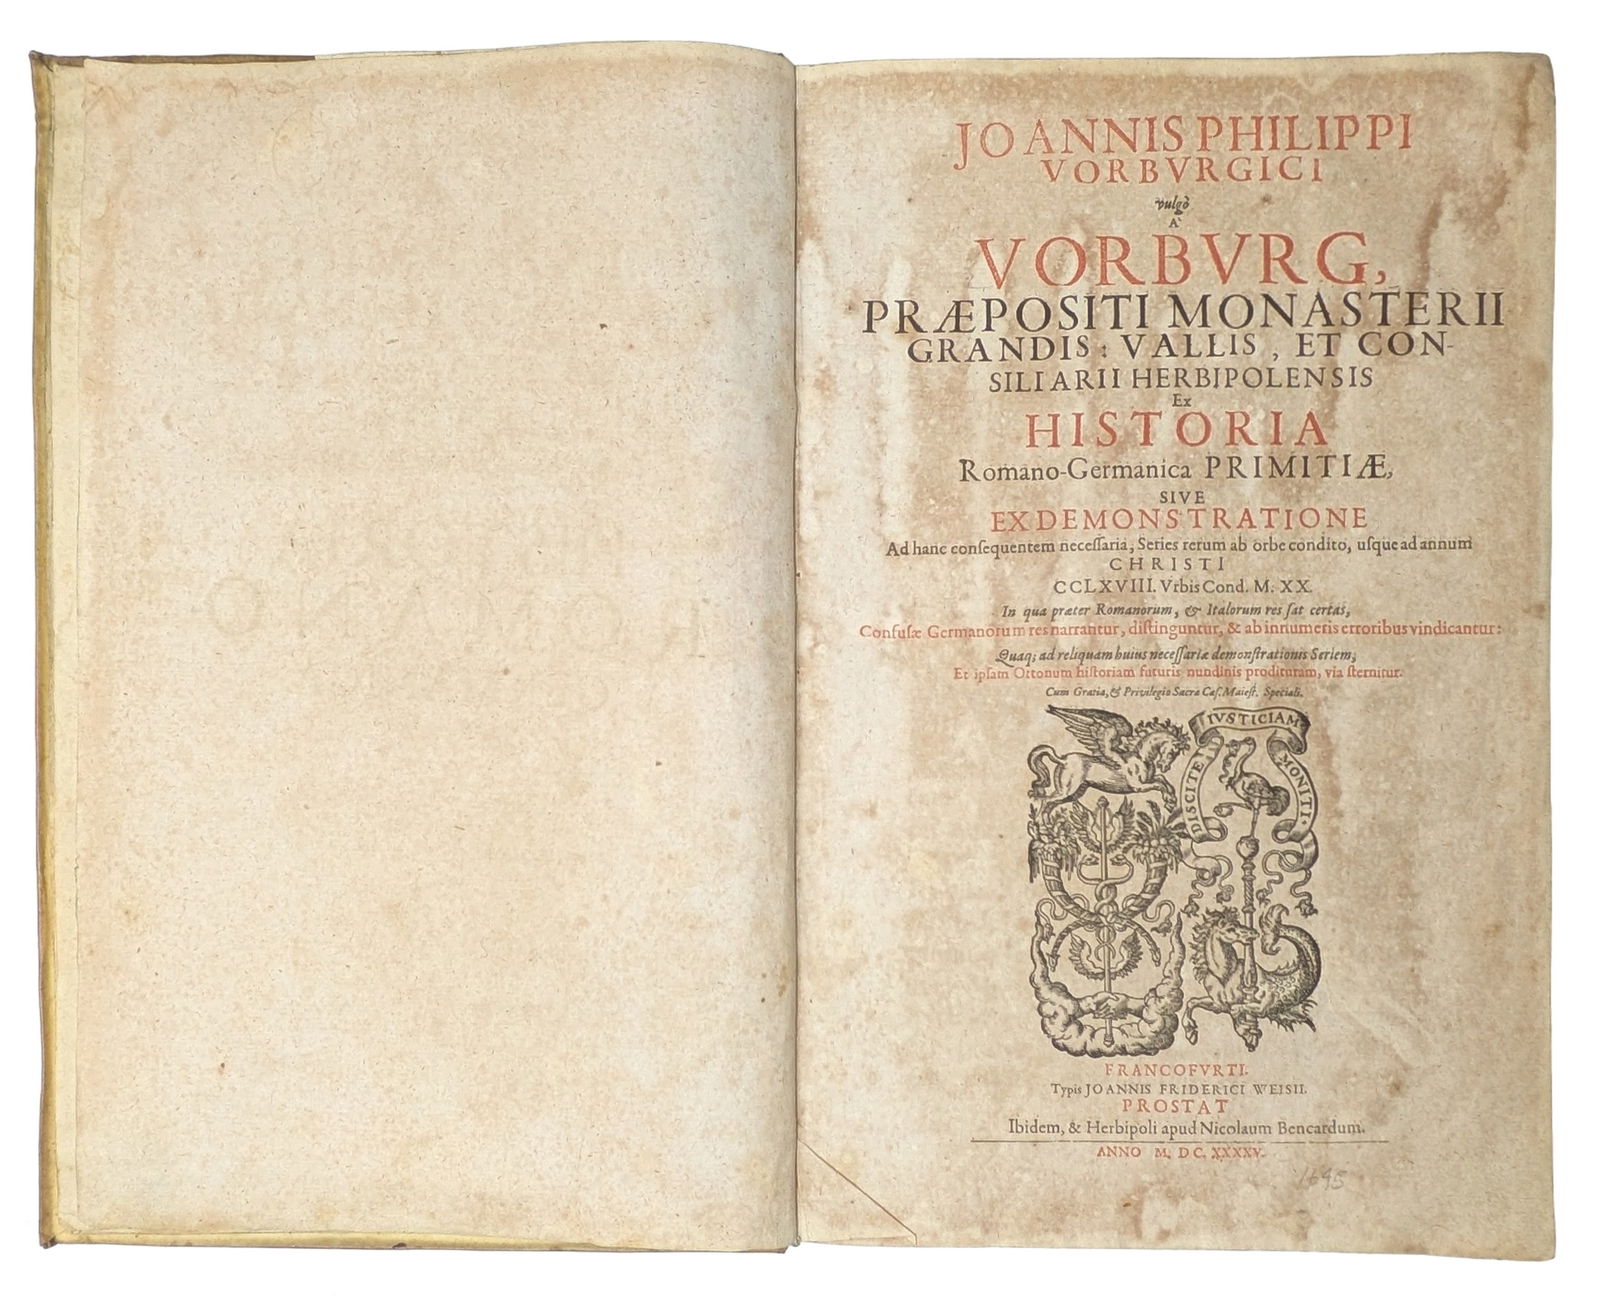 JOANNIS PHILIPPI
VORBVRGICI
vulgò
A
VORBVRG,
PRÆPOSITI MONASTERII
GRANDIS: VALLIS, ET CON-
SILIARII HERBIPOLENSIS
Ex
HISTORIA
Romano-Germanica PRIMITIÆ,
SIVE
EX DEMONSTRATIONE
Ad hanc consequentem necessaria, Series rerum ab orbe condito, usque ad annum
CHRISTI
CCLXVIII. Vrbis Cond. M. XX.
In qua præter Romanorum, & Italorum res sat certas,
Confusæ Germanorum res narrantur, distinguntur, & ab innumeris erroribus vindicantur:
Quaq; ad reliquam huius necessariæ demonstrationis Seriem,
Et ipsam Ottonum historiam futuris nundinis prodituram, via sternitur.
Cum Gratia, & Privilegio Sacræ Cæs. Maiest. Speciali.
DISCITE IVSTICIAM MONITI.
FRANCOFVRTI.
Typis JOANNIS FRIDERICI WEISII.
PROSTAT
Ibidem, & Herbipoli apud Nicolaum Bencardum.
ANNO M. DC. XXXXV.
1645